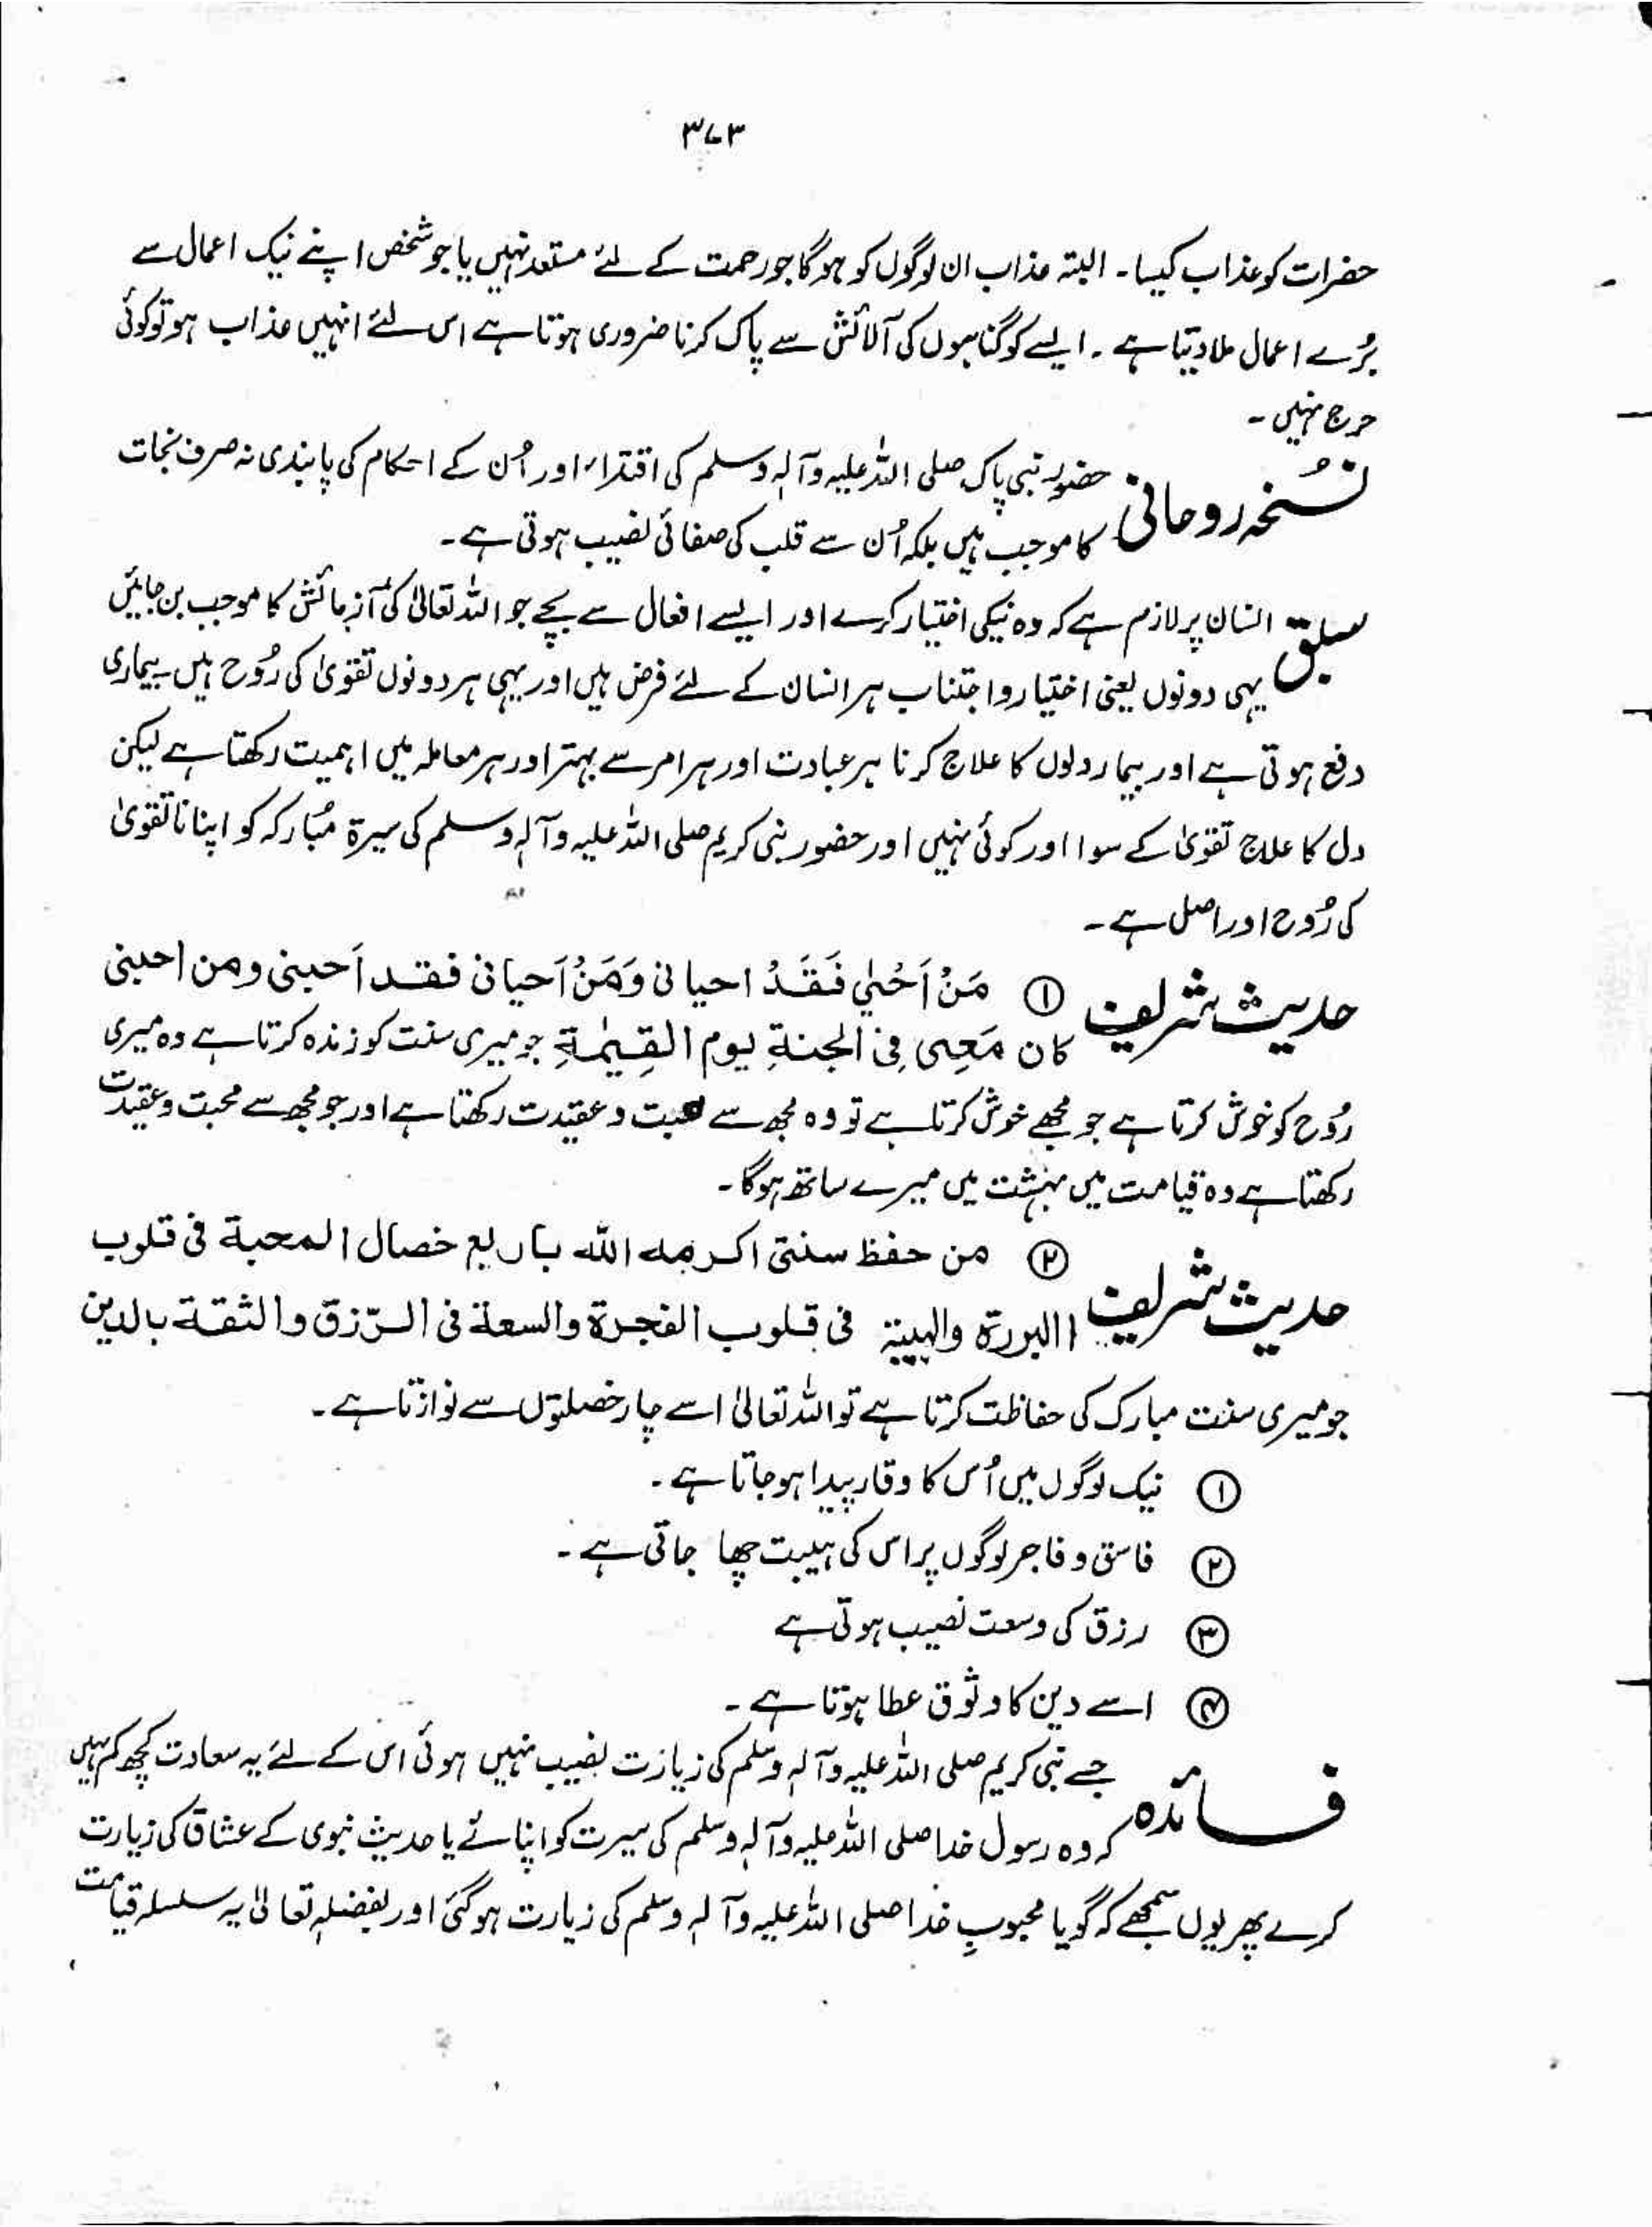 ۳۷۳
حضرات کو عذاب کیسا۔ البتہ عذاب ان لوگوں کو ہوگا جو رحمت کے لئے مستعد نہیں یا جو شخص اپنے نیک اعمال سے
بُرے اعمال ملا دیتا ہے۔ ایسے کو گناہوں کی آلائش سے پاک کرنا ضروری ہوتا ہے اس لئے انہیں عذاب ہو تو کوئی
حرج نہیں۔
نُسخہ روحانی حضور نبی پاک صلی اللہ علیہ وآلہٖ وسلم کی اقتداء اور اُن کے احکام کی پابندی نہ صرف نجات
کا موجب ہیں بلکہ اُن سے قلب کی صفائی نصیب ہوتی ہے۔
سبق انسان پر لازم ہے کہ وہ نیکی اختیار کرے اور ایسے افعال سے بچے جو اللہ تعالیٰ کی آزمائش کا موجب بن جائیں
یہی دونوں یعنی اختیار و اجتناب ہر انسان کے لئے فرض ہیں اور یہی ہر دونوں تقویٰ کی رُوح ہیں۔ بیماری
دفع ہوتی ہے اور بیمار دلوں کا علاج کرنا ہر عبادت اور ہر امر سے بہتر اور ہر معاملہ میں اہمیت رکھتا ہے لیکن
دل کا علاج تقویٰ کے سوا اور کوئی نہیں اور حضور نبی کریم صلی اللہ علیہ وآلہٖ وسلم کی سیرۃ مُبارکہ کو اپنانا تقویٰ
کی رُوح اور اصل ہے۔
حدیث شریف ① مَنْ اَحْیٰ فَقَدْ احیانی وَمَنْ اَحیانی فقد اَحبنی ومن احبنی
کان مَعِی فِی الجنۃِ یوم القِیٰمۃِ جو میری سنت کو زندہ کرتا ہے وہ میری
رُوح کو خوش کرتا ہے جو مجھے خوش کرتا ہے تو وہ مجھ سے محبت و عقیدت رکھتا ہے اور جو مجھ سے محبت و عقیدت
رکھتا ہے وہ قیامت میں بہشت میں میرے ساتھ ہوگا۔
حدیث شریف ② من حفظ سنتی اکرمہ اللہ باربع خصال المحبۃ فی قلوب
االبررۃ والہیبۃ فی قلوب الفجرۃ والسعۃ فی الرّزق والثقۃ بالدین
جو میری سنت مبارک کی حفاظت کرتا ہے تو اللہ تعالیٰ اسے چار خصلتوں سے نوازتا ہے۔
① نیک لوگوں میں اُس کا وقار پیدا ہو جاتا ہے۔
② فاسق و فاجر لوگوں پر اس کی ہیبت چھا جاتی ہے۔
③ رزق کی وسعت نصیب ہوتی ہے
④ اسے دین کا وثوق عطا ہوتا ہے۔
فائدہ جسے نبی کریم صلی اللہ علیہ وآلہٖ وسلم کی زیارت نصیب نہیں ہوئی اس کے لئے یہ سعادت کچھ کم نہیں
کہ وہ رسول خدا صلی اللہ علیہ وآلہٖ وسلم کی سیرت کو اپنائے یا حدیث نبوی کے عشاق کی زیارت
کرے پھر یوں سمجھے کہ گویا محبوبِ خدا صلی اللہ علیہ وآلہٖ وسلم کی زیارت ہوگئی اور بفضلہٖ تعالیٰ یہ سلسلہ قیامت